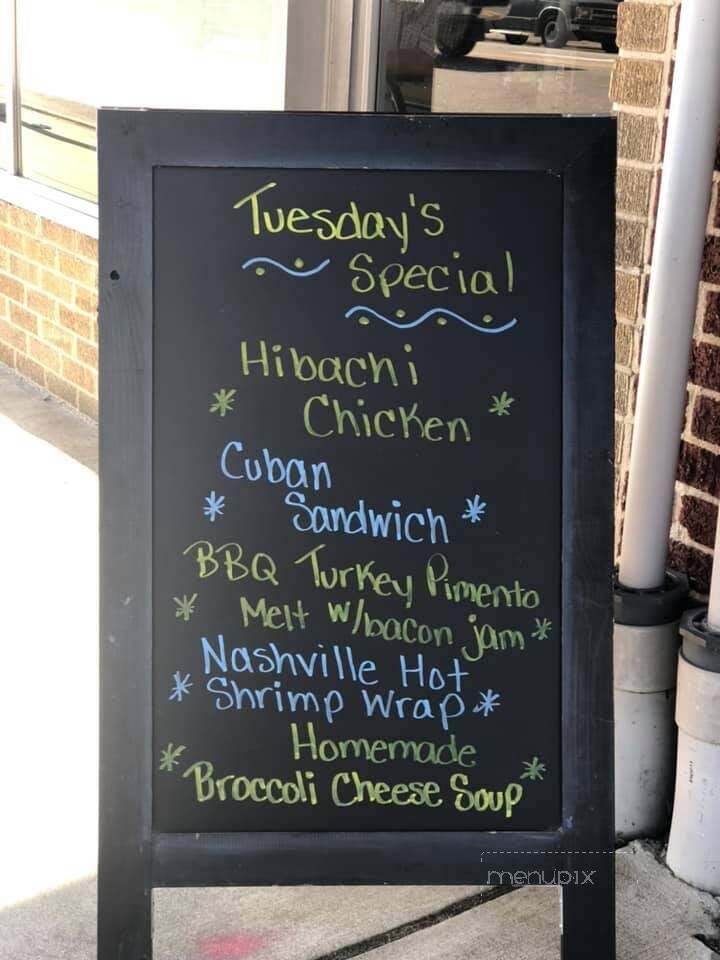 Tuesday's
Special
Hibachi
Chicken
Cuban
Sandwich
BBQ Turkey Pimento
Melt w/bacon jam
Nashville Hot
Shrimp Wrap
Homemade
Broccoli Cheese Soup
menupix